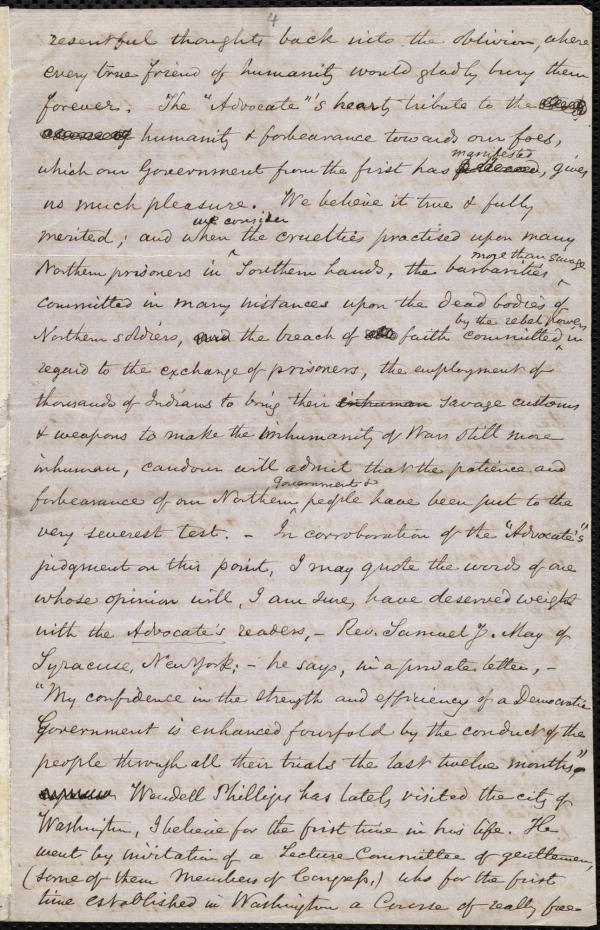 4
resentful thoughts back into the oblivion, where
every true friend of humanity would gladly bury them
forever. The "Advocate"'s hearty tribute to the
humanity & forbearance towards our foes,
manifested
which our Government from the first has, gives
us much pleasure. We believe it true & fully
we consider
merited; and when the cruelties practised upon many
more than savage
Northern prisoners in Southern hands, the barbarities
committed in many instances upon the dead bodies of
by the rebel powers
Northern soldiers, and the breach of faith committed in
regard to the exchange of prisoners, the employment of
thousands of Indians to bring their inhuman savage customs
& weapons to make the inhumanity of Wars still more
inhuman, candour will admit that the patience and
Government &
forbearance of our Northern people have been put to the
very severest test. – In corroboration of the "Advocate's"
judgment on this point, I may quote the words of one
whose opinion will, I am sure, have deserved weight
with the Advocate's readers, – Rev. Samuel J. May of
Syracuse, New York; – he says, in a private letter, –
"My confidence in the strength and efficiency of a Democratic
Government is enhanced fourfold by the conduct of the
people through all their trials the last twelve months."
Wendell Phillips has lately visited the city of
Washington, I believe for the first time in his life. He
went by invitation of a Lecture Committee of gentlemen,
(some of them Members of Congress,) who for the first
time established in Washington a Course of really free